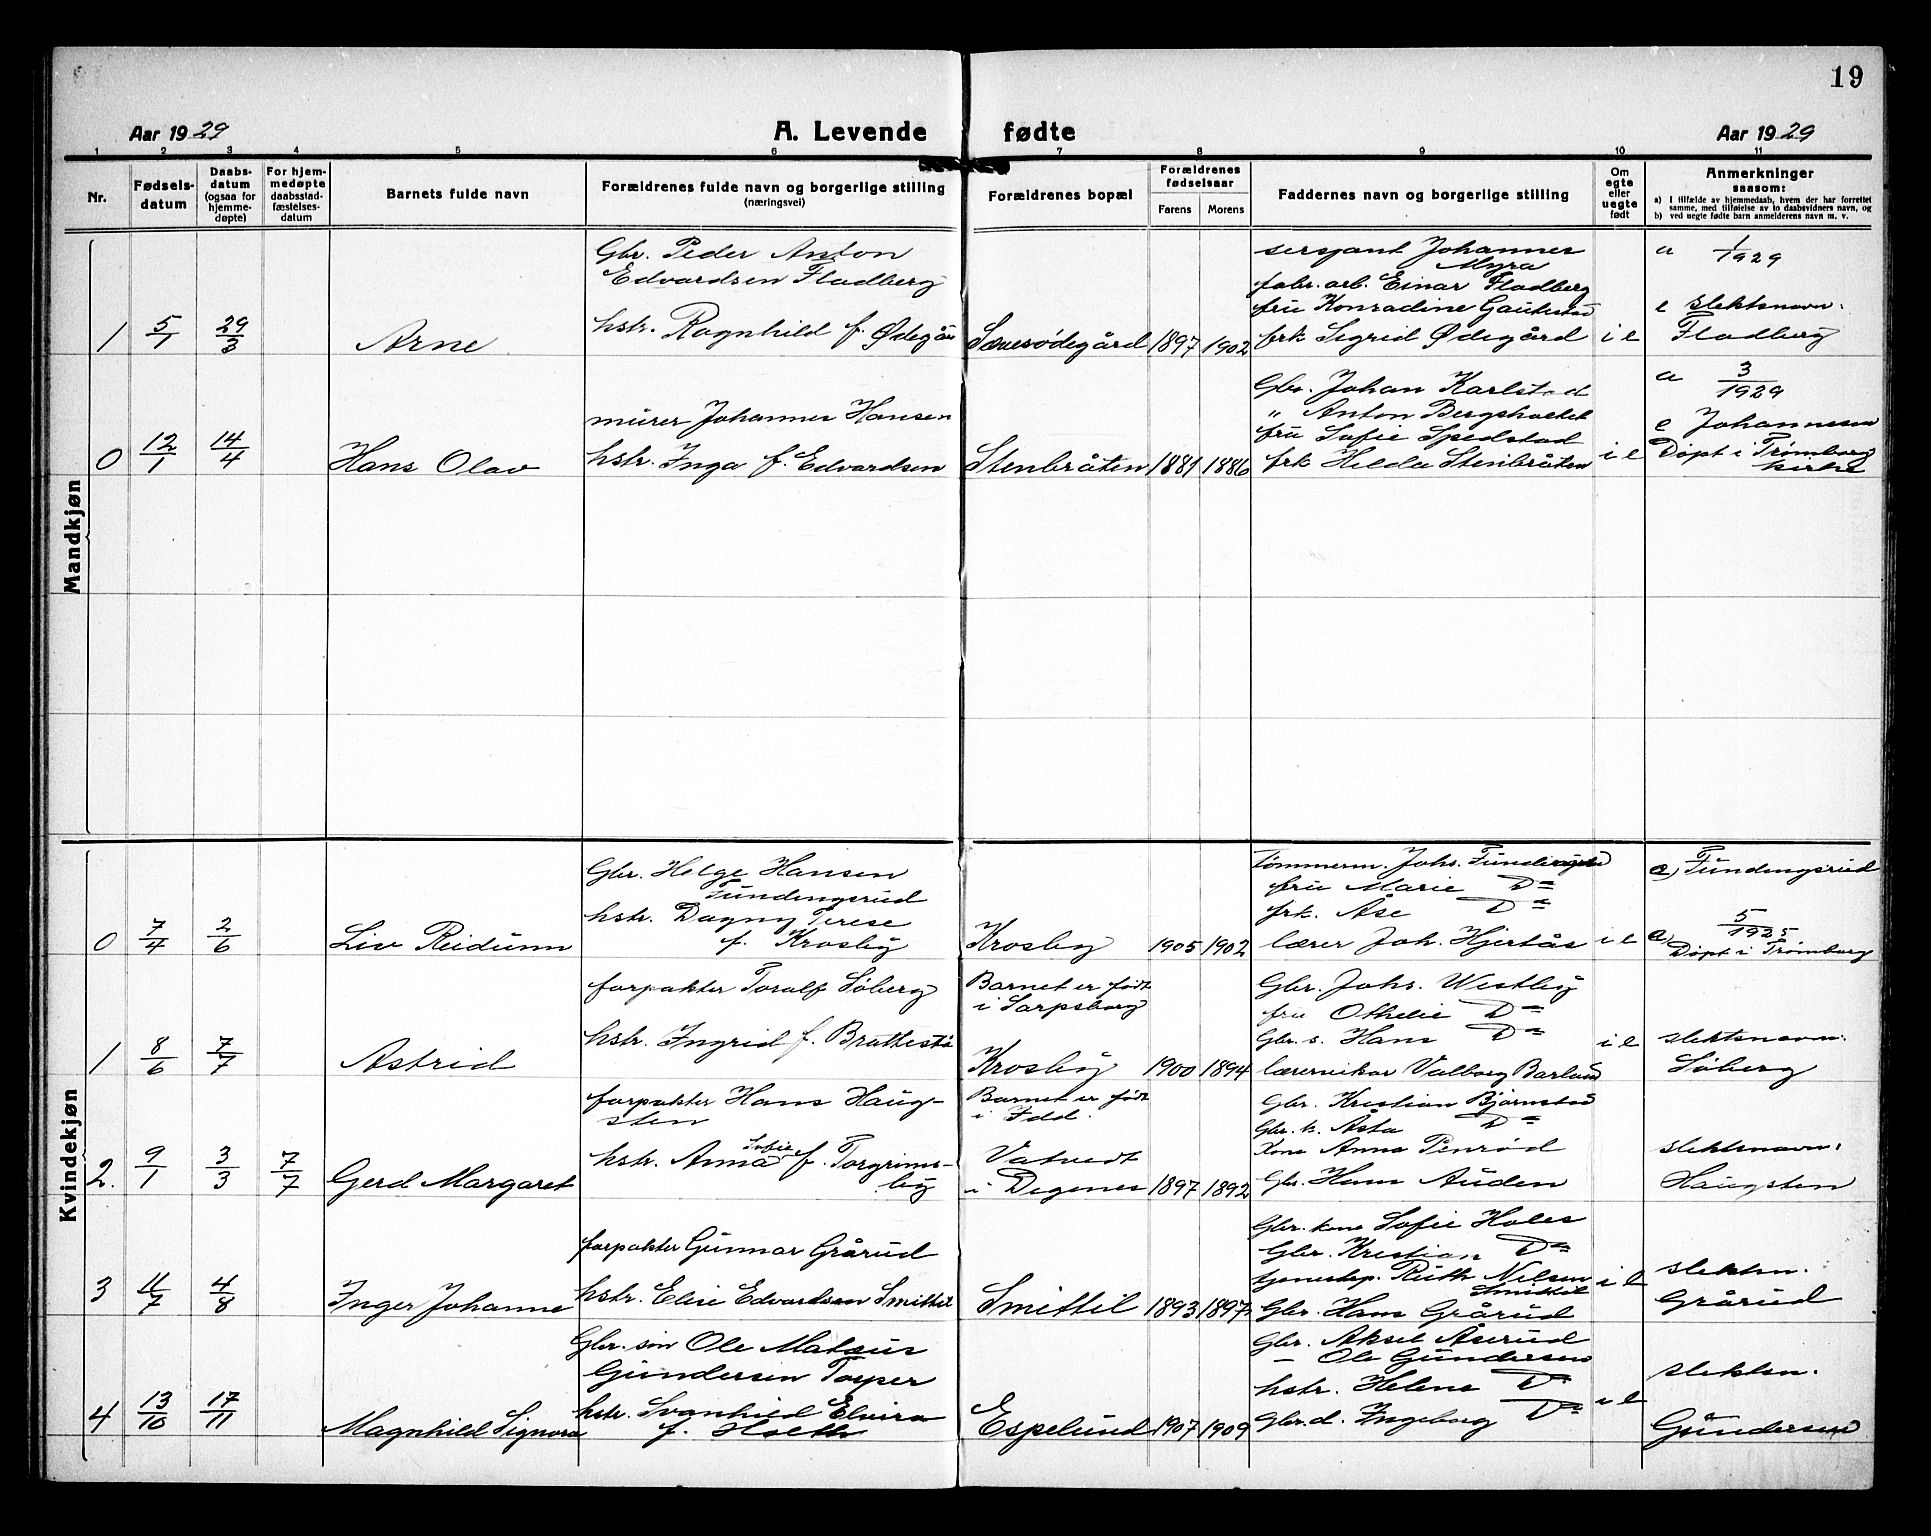 19
Aar 1929
A. Levende fødte
Aar 1929
1 2 3 4 5 6 7 8 9 10 11
Nr.
Fødsels-
datum
Daabs-
datum
(ogsaa for
hjemme-
døpte)
For hjem-
medøpte
daabsstad-
fæstelses-
datum
Barnets fulde navn
Forældrenes fulde navn og borgerlige stilling
(næringsvei)
Forældrenes bopæl
Forældrenes
fødselsaar
Farens
Morens
Faddernes navn og borgerlige stilling
Om
egte
eller
uegte
født
Anmerkninger
saasom:
a) I tilfælde av hjemmedaab, hvem der har forrettet
samme, med tilføielse av to daabsvidners navn, og
b) ved uegte fødte barn anmelderens navn m. v.
Mandkjøn
1
5/1
29/3
Arne
Gbr. Peder Anton
Edvardsen Fladberg
hstr. Ragnhild f. Ødegår
Sævesødegård
1897
1902
sersjant Johannes
Myra
fabr. arb. Einar Fladberg
fru Konradine Gautestad
frk Sigrid Ødegård
i e
a 1/1929
e slektsnavn:
Fladberg
0
12/1
14/4
Hans Olav
murer Johannes Hansen
hstr. Inga f. Edvardsen
Stenbråten
1881
1886
Gbr. Johan Karlstad
" Anton Bergsholtet
fru Sofie Spedstad
frk Hilda Stenbråten
i e
a 3/1929
e Johannesen
Døpt i Trømborg
kirke
Kvindekjøn
0
7/4
2/6
Liv Reidunn
Gbr. Helge Hansen
Fundingsrud
hstr. Dagny Terese
f. Krosby
Krosby
1905
1902
Tømmerm. Johs. Fundingsrud
fru Marie Do
frk. Åse Do
lærer Joh. Hjertås
i e
e) Fundingsrud
a) 5/1925
Døpt i Trømborg
1
8/6
7/7
Astrid
forpakter Toralf Søberg
hstr. Ingrid f. Brattestå
Barnet er født
i Sarpsborg
Krosby
1900
1894
Gbr. Johs. Westby
fru Othelie Do
Gbr. s. Hans Do
lærervikar Valborg Barlund
i e
slektsnavn:
Søberg
2.
9/1
3/3
7/7
Gerd Margaret
forpakter Hans Haug-
sten
hstr. Anna Sofie f. Torgrims-
by
Barnet er født
i Idd.
Vatvedt
i Degenes
1897
1892
Gbr. Kristian Bjørnstad
Gbr. k. Åsta Do
Kone Anna Penrød
Gbr. Hans Auden
slektsnavn:
Haugsten
3
11/7
4/8
Inger Johanne
forpakter Gunnar Grårud
hstr. Elise Edvardsen Smittil
Smittil
1893
1897
Gbr. kone Sofie Holes
Gbr. Kristian Do
tjenestep. Ruth Nilsen
Smittil
Gbr. Hans Grårud
i e
slektsn.
Grårud
4
13/10
17/11
Magnhild Signora
Gbr. søn Ole Mateus
Gundersen Torper
hstr. Svanhild Elvira
f. Holth
Espelund
1907
1909
Gbr. Aksel Åserud
— Ole Gundersen
hstr. Helene Do
Gbr. d. Ingeborg Do
i e
slektsn.
Gundersen